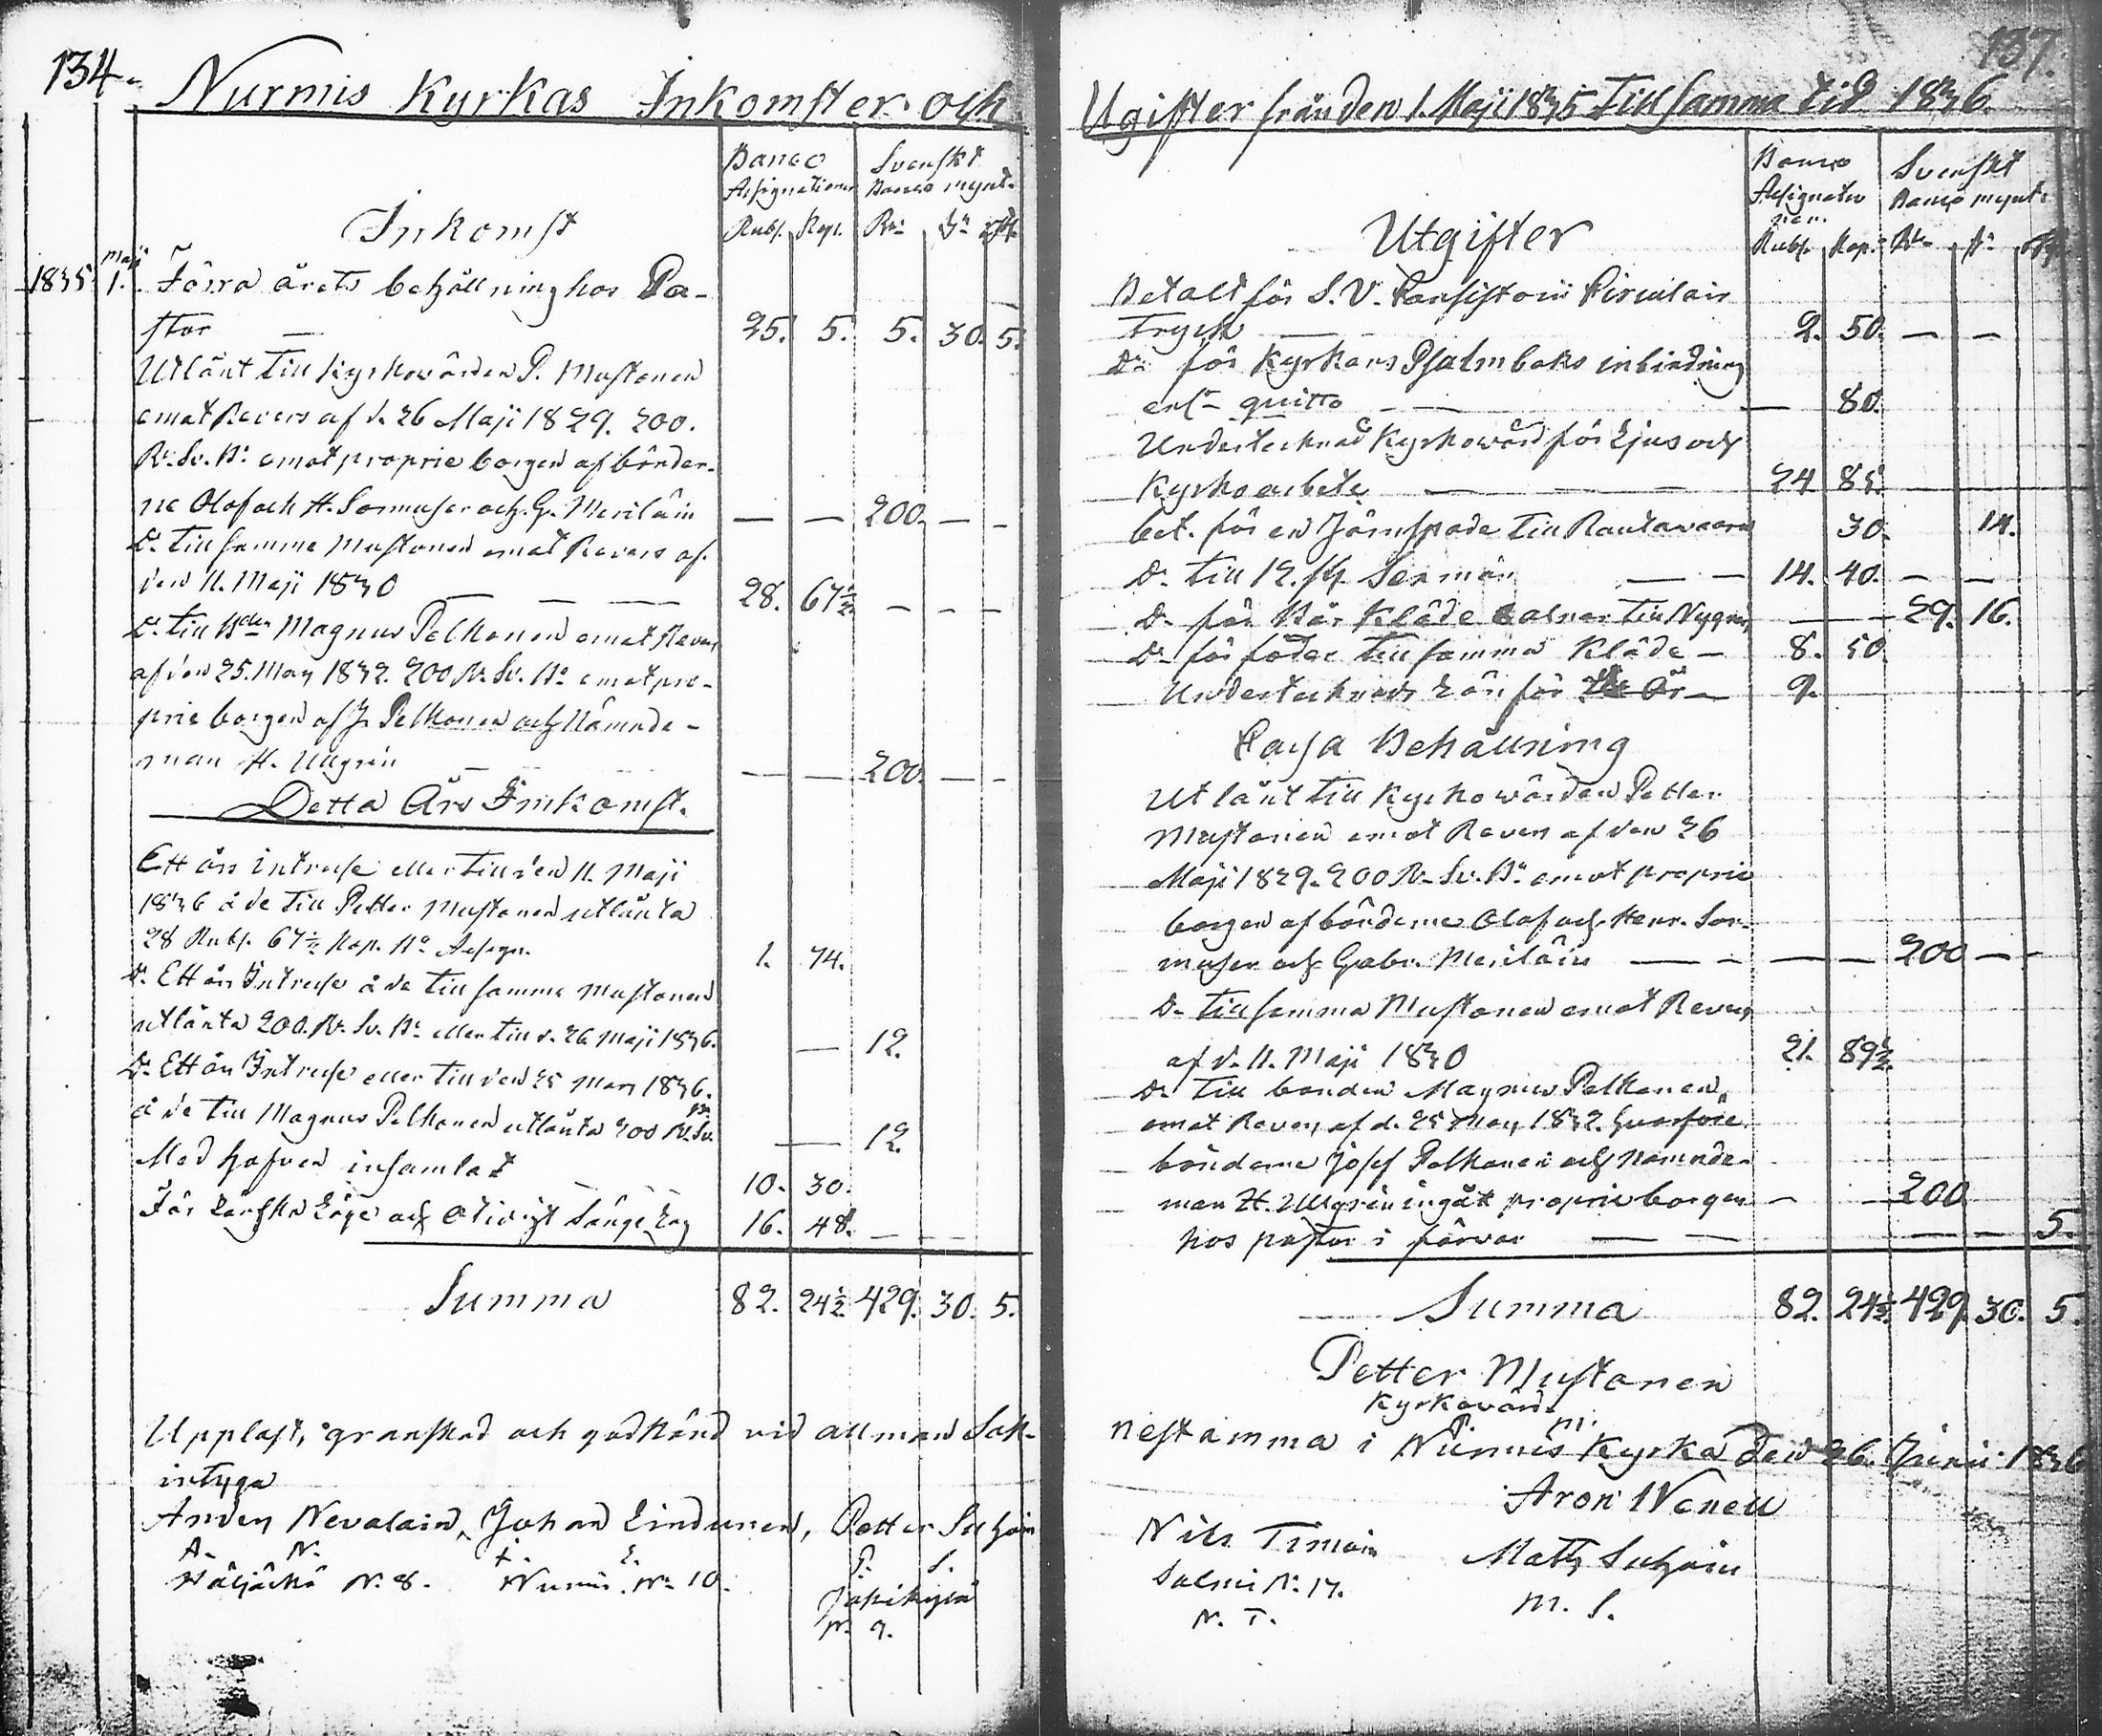 134.
Nurmis Kyrkas Inkomster och
Banco Svenskt
Assignationer Banco mynt.
Inkomst
Rubl. Kop. Rd. s. rst.
1835 Maji 1. Förra årets behållning hos Pa-
stor — 25. 5. 5. 30. 5.
Utlånt till Kyrkowärden P. Mustonen
emot Revers af d. 26 Maji 1829. 200.
Rd. Sv. Bo. emot proprie borgen af bönder-
ne Olof och H. Sormuser och G. Meriläin — — 200. — —
Do. till samma Mustonen emot Revers af
den 11. Maji 1830 — — — 28. 67½ — — —
Do. till Bden Magnus Pelkonen emot Revers
af den 25. Mars 1832. 200 Rd. Sv. Bo. emot pro-
prie borgen af J. Pelkonen och Nämnde-
man H. Ullgrén — — — 200. — —
Detta Års Inkomst.
Ett års intresse eller till den 11. Maji
1836 å de till Petter Mustonen utlånta
28 Rubl. 67½ Kop. Bo. Assign. 1. 74.
Do. Ett års Intresse å de till samma Mustonen
utlånta 200. Rd. Sv. Bo. eller till d. 26 Maji 1836. — 12.
Do. Ett års Intresse eller till den 25 Mars 1836.
å de till Magnus Pelkonen utlånta 200 Rd. Sv. — 12.
Med hafven insamlat 10. 30.
För och 16. 48. — —
Summa 82. 24½ 429. 30. 5.
Uppläst, granskad och godkänd vid allmän Sok-
intyga
Anders Nevalain, Johan Lindunen, Petter Suhoin
A. N. J. L. P. S.
No. 8. Nurmis No. 10.
No. 9.
137.
Utgifter från den 1. Maji 1835 till samma tid 1836.
Banco Svenskt
Assignatio Banco mynt.
ner.
Utgifter
Rubl. Kop. Rd. s. rst.
Betalt för S. V. Consistorii Circulair
Tryck — — 2. 50. — —
Do. för Kyrkans Psalmboks inbindning
enl. quitto — — — 80.
Undertecknad Kyrkowärd för Ljus och
Kyrkoarbete — — — 24 85.
bet. för en Järnspade till Rautawaara 30. 14.
Do. till 12. st. — — 14. 40. — —
Do. för Bår Kläde till — — 29. 16.
Do. för foder till samma Kläde — 8. 50
Undertecknads Lön för År — 9.
Cassa Behållning
Utlånt till Kyrkowärden Petter
Mustonen emot Revers af den 26
Maji 1829. 200 Rd. Sv. Bo. emot proprie
borgen af bönderne Olof och Henr. Sor-
muser och Gabr. Meriläin — — — — 200 — —
Do. till samma Mustonen emot Revers
af d. 11. Maji 1830 21. 89½
Do. till bonden Magnus Pelkonen
emot Revers af d. 25 Mars 1832. hvarföre
bönderne Josef Pelkonen och Nämnde-
man H. Ullgrén ingått proprie borgen — — 200
hos pastor i förvar — — — — 5.
Summa 82. 24½. 429 30. 5.
Petter Mustonen
Kyrkovärd.
P. M.
nestämma i Nurmis Kyrka den 26. Junii 1836
Aron Wenell
Nils Timoin Matts Suhoin
Salmi No. 17. M. S.
N. T.